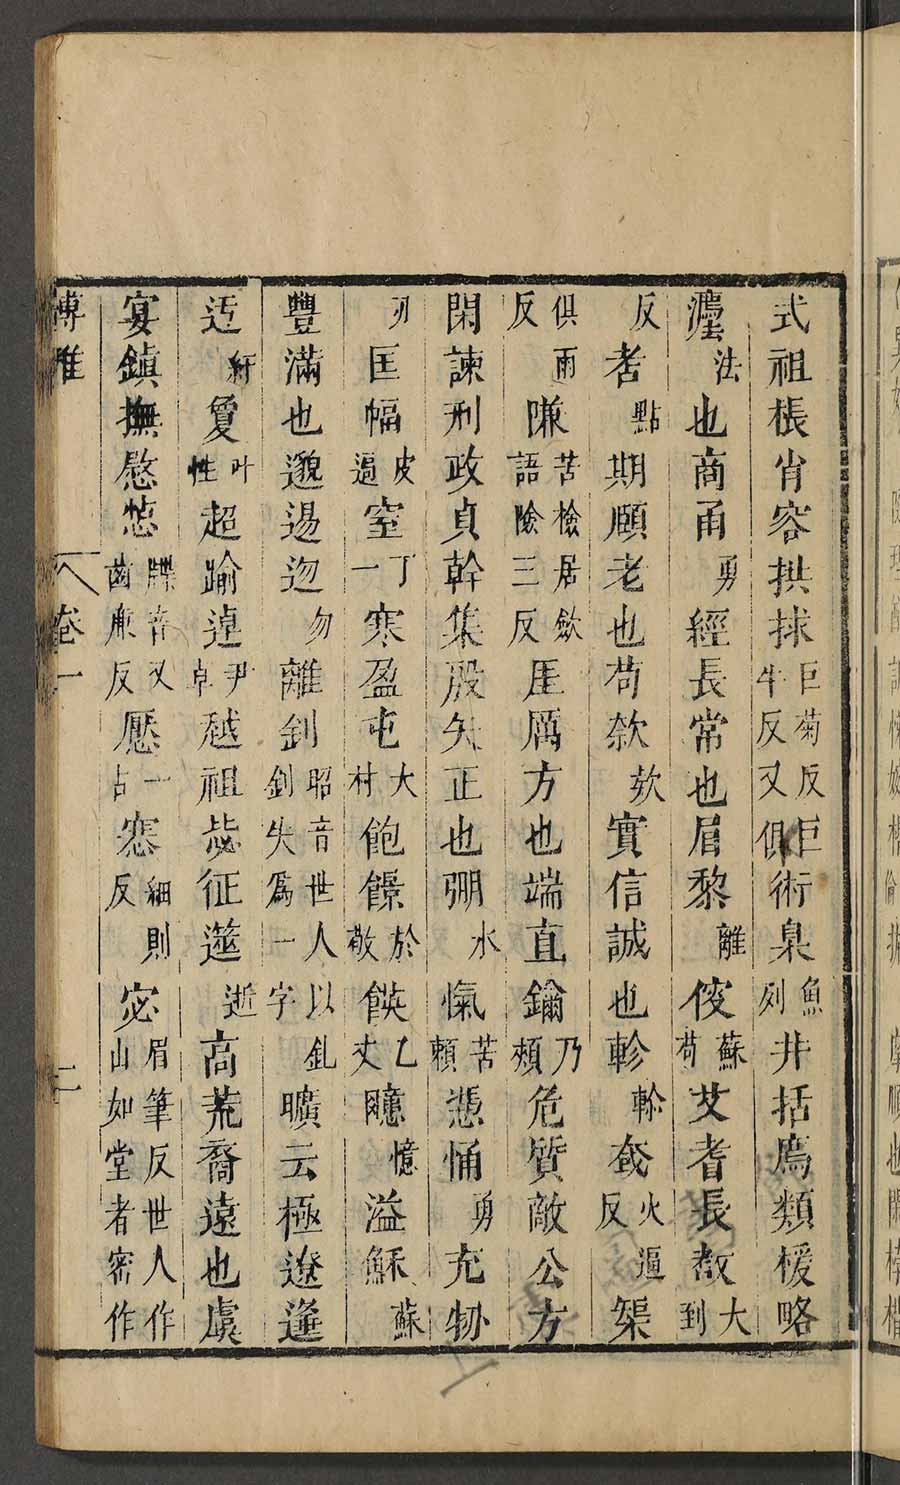 式祖棖肖容拱捄巨菊反巨牛反又俱術臬魚列井括廌類楥略
灋法也商甬勇經長常也眉黎離傁蘇苟艾耆長大到
反耇點期頤老也苟款欵實信誠也軫軫火逼反榘
俱雨反隒苦檢居欽語險三反厓厲方也端直乃頰危質敵公方
閑諫刑政貞幹集殷矢正也弸水愾苦賴憑悀勇充牣
刃匡幅皮逼窒丁一寒盈屯大村飽於敬乙丈臆憶溢穌蘇
豐滿也邈逷迦勿離釗昭音世人以釓釗失爲一字曠云極遼
迂紆敻叶性超踰逴尹卓越祖征遾逝高荒裔遠也虞
宴鎮撫牒音又齒廉反懕一占細則反宓眉筆反世人作山如堂者密作
博雅 卷一 二